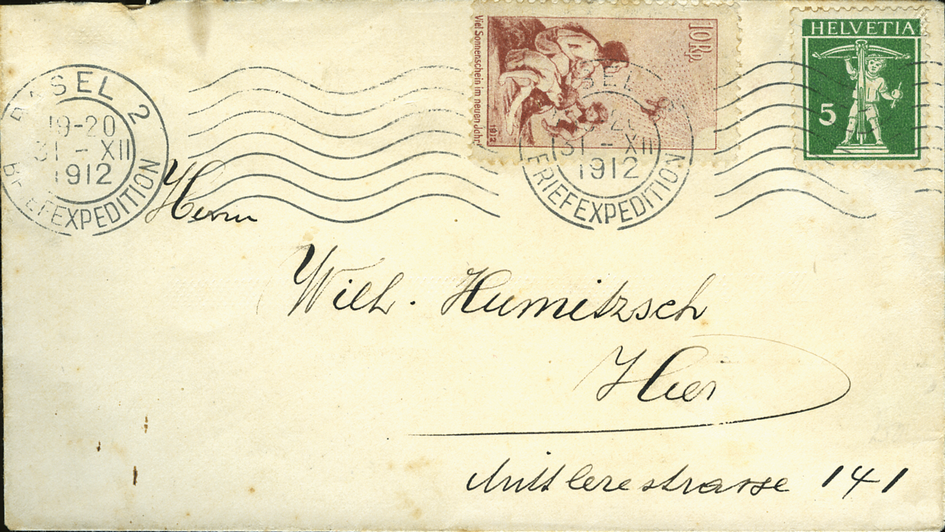 HELVETIA
5
10 Rp.
Viel Sonnenschein im neuen Jahre!
1912
BASEL 2
19-20
31-XII
1912
BRIEFEXPEDITION
31-XII
1912
BRIEFEXPEDITION
Herrn
Wilh. Humitzsch
Hier
Mittlerestrasse 141